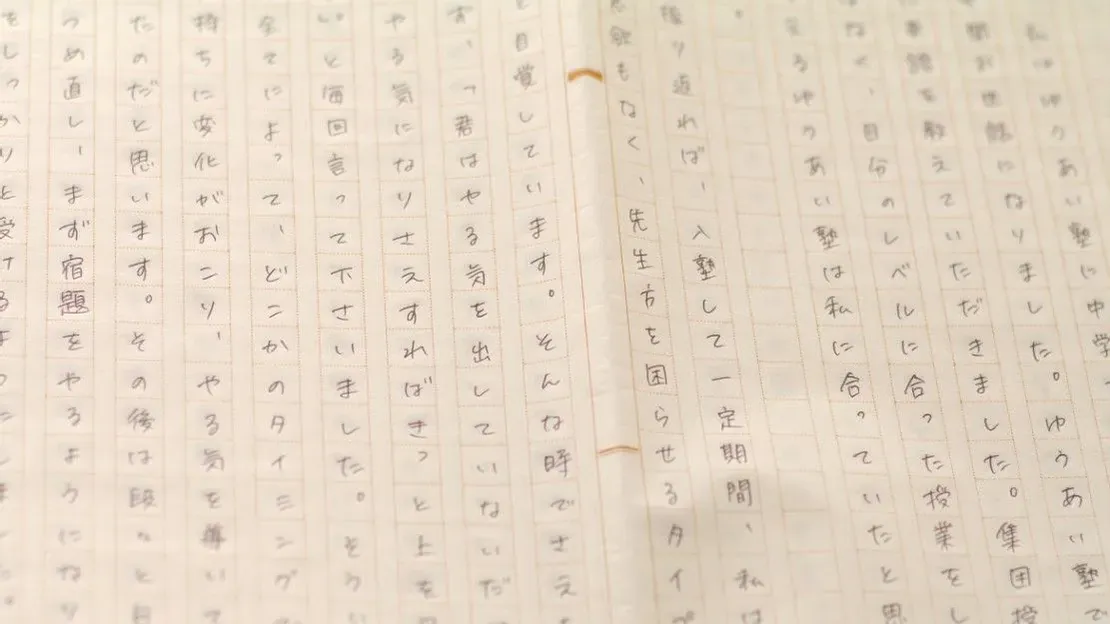 私はゆうあい塾に中学
間お世話になりました。ゆうあい塾で
を教えていただきました。集団授
なく、自分のレベルに合った授業をし
えるゆうあい塾は私に合っていたと思
。
振り返れば、入塾して一定期間、私は
もなく、先生方を困らせるタイプ
自覚しています。そんな時でさえ
す、「君はやる気を出していないだ
やる気になりさえすればきっと上を
い。と毎回言って下さいました。そう
全てによって、どこかのタイミング
持ちに変化がおこり、やる気を導いて
たのだと思います。その後は段々と自
つめ直し、まず宿題をやるようになり
をしっかりと受けるよ